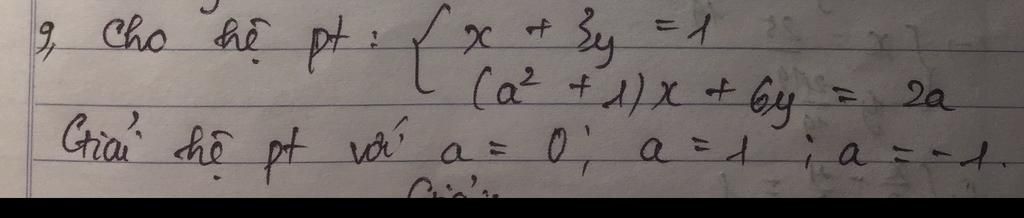 9, Cho hệ pt : { x + 3y = 1
(a² + 1)x + 6y = 2a
Giải hệ pt với a = 0; a = 1 ; a = -1.
Giải: